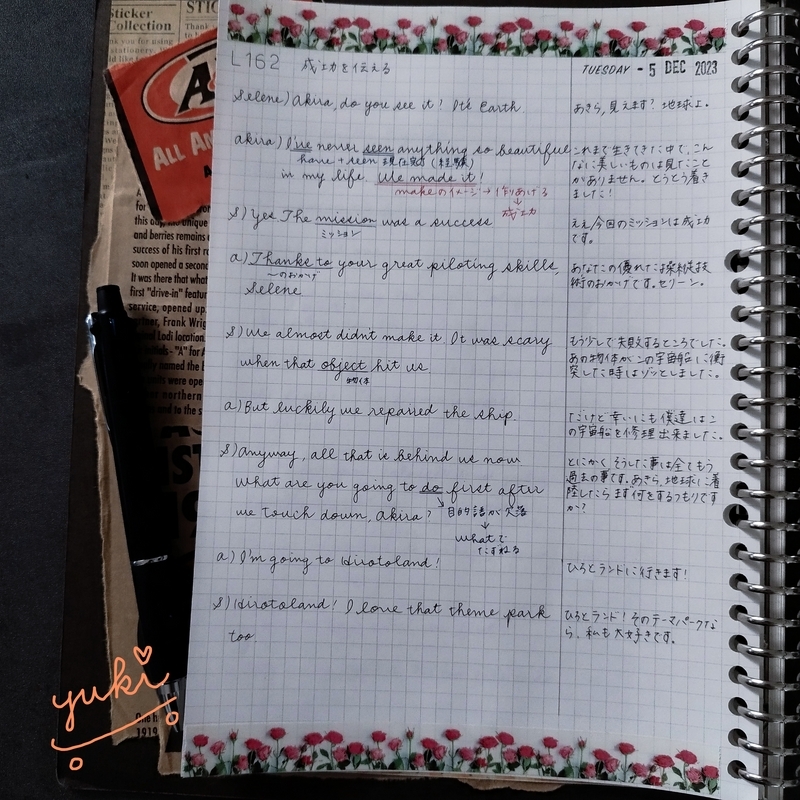 Sticker
Collection
STIC
Thank
A
ALL AN
and berries remains
success of his first ro
soon opened a second
It was there that what
first "drive-in" feature
service, opened up.
Frank Wrig
Lodi location
northern
and to the s
One h
1919
L162 成功を伝える
TUESDAY - 5 DEC 2023
Selene) Akira, do you see it! It's Earth.
あきら,見えます?地球よ。
akira) I've never seen anything so beautiful
have + seen 現在完了(経験)
in my life. We made it!
makeのイメージ→作りあげる
↓
成功
これまで生きてきた中で、こん
なに美しいものは見たこと
がありません。とうとう着き
ました!
S) Yes The mission was a success
ミッション
ええ/今回のミッションは成功
です。
a) Thanks to your great piloting skills,
〜のおかげ
Selene
あなたの優れた操縦技
術のおかげです。セリーン。
S) We almost didn't make it. It was scary
when that object hit us
物体
もう少しで失敗するところでした。
あの物体がこの宇宙船に衝
突した時はゾッとしました。
a) But luckily we repaired the ship.
だけど幸いにも僕達はこ
の宇宙船を修理出来ました。
S) Anyway, all that is behind us now
What are you going to do first after
we touch down, Akira?
目的語が欠落
↓
whatで
たずねる
とにかく、そうした事は全てもう
過去の事です。あきら、地球に着
陸したらまず何をするつもりです
か?
a) I'm going to Hirotoland!
ひろとランドに行きます!
S) Hirotoland! I love that theme park
too.
ひろとランド!そのテーマパークな
ら、私も大好きです。
yuki